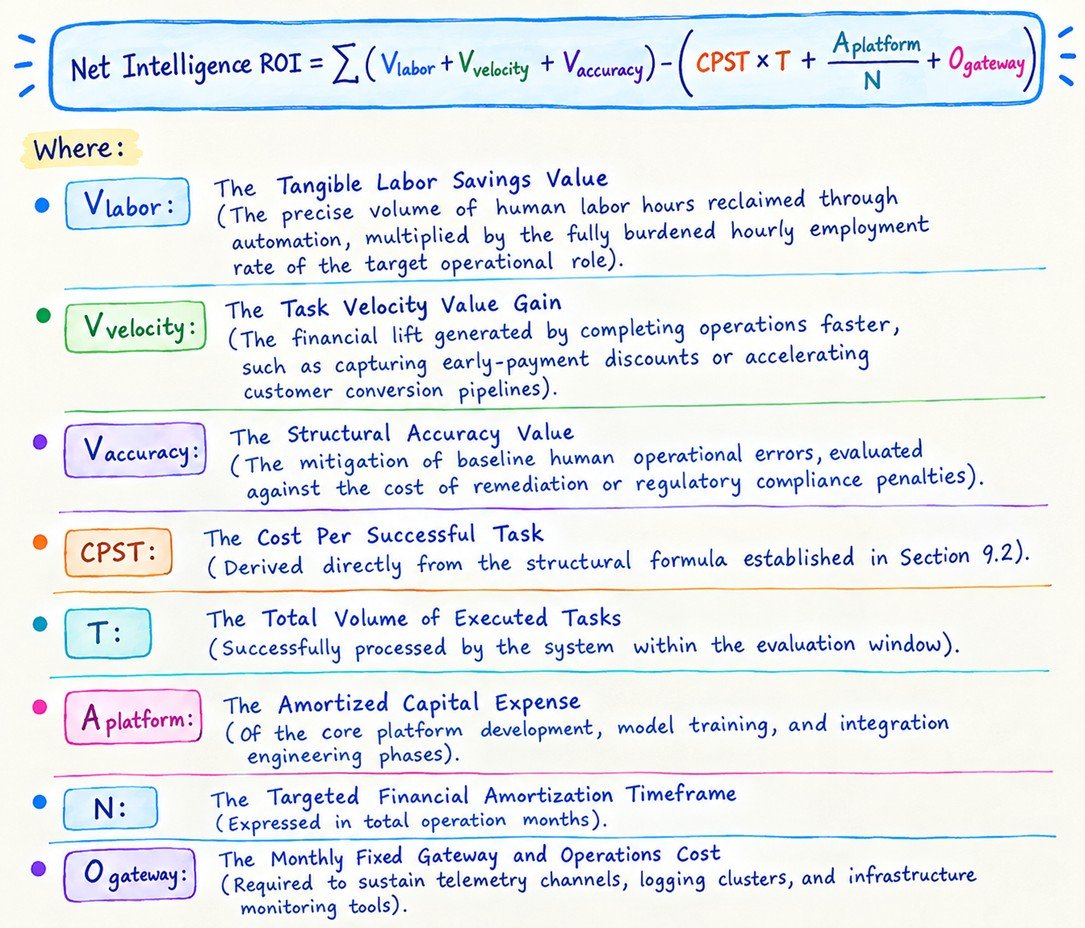 Net Intelligence ROI = ∑ (Vlabor + Vvelocity + Vaccuracy) − (CPST × T + Aplatform / N + Ogateway)
Where:
Vlabor: The Tangible Labor Savings Value
(The precise volume of human labor hours reclaimed through
automation, multiplied by the fully burdened hourly employment
rate of the target operational role).
Vvelocity: The Task Velocity Value Gain
(The financial lift generated by completing operations faster,
such as capturing early-payment discounts or accelerating
customer conversion pipelines).
Vaccuracy: The Structural Accuracy Value
(The mitigation of baseline human operational errors, evaluated
against the cost of remediation or regulatory compliance penalties).
CPST: The Cost Per Successful Task
(Derived directly from the structural formula established in Section 9.2).
T: The Total Volume of Executed Tasks
(Successfully processed by the system within the evaluation window).
Aplatform: The Amortized Capital Expense
(Of the core platform development, model training, and integration
engineering phases).
N: The Targeted Financial Amortization Timeframe
(Expressed in total operation months).
Ogateway: The Monthly Fixed Gateway and Operations Cost
(Required to sustain telemetry channels, logging clusters, and infrastructure
monitoring tools).